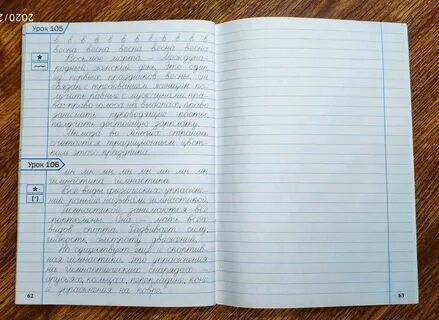 2020/2
Урок 105
в в в в в в в в в в в в в
весна весна весна весна весна
Восьмое марта – Междуна-
родный женский день. Это один
из первых праздников весны. Он
связан с требованием женщин по-
лучить равные с мужчинами пра-
ва: право голоса на выборах, право
занимать руководящие посты,
получать достойную зарплату.
Мимоза во многих странах
считается традиционным цвет-
ком этого праздника.
Урок 106
мн мн мн мн мн мн мн мн
гимнастика гимнастика
Все виды физических упражне-
ний раньше называли гимнастикой.
Гимнастикой занимаются все
спортсмены. Она – мать всех
видов спорта. Развивает силу,
гибкость, быстроту движений.
Но существует ещё и спортив-
ная гимнастика. Это упражнения
на гимнастических снарядах –
брусьях, кольцах, перекладине, коне
и упражнения на ковре.
62
63